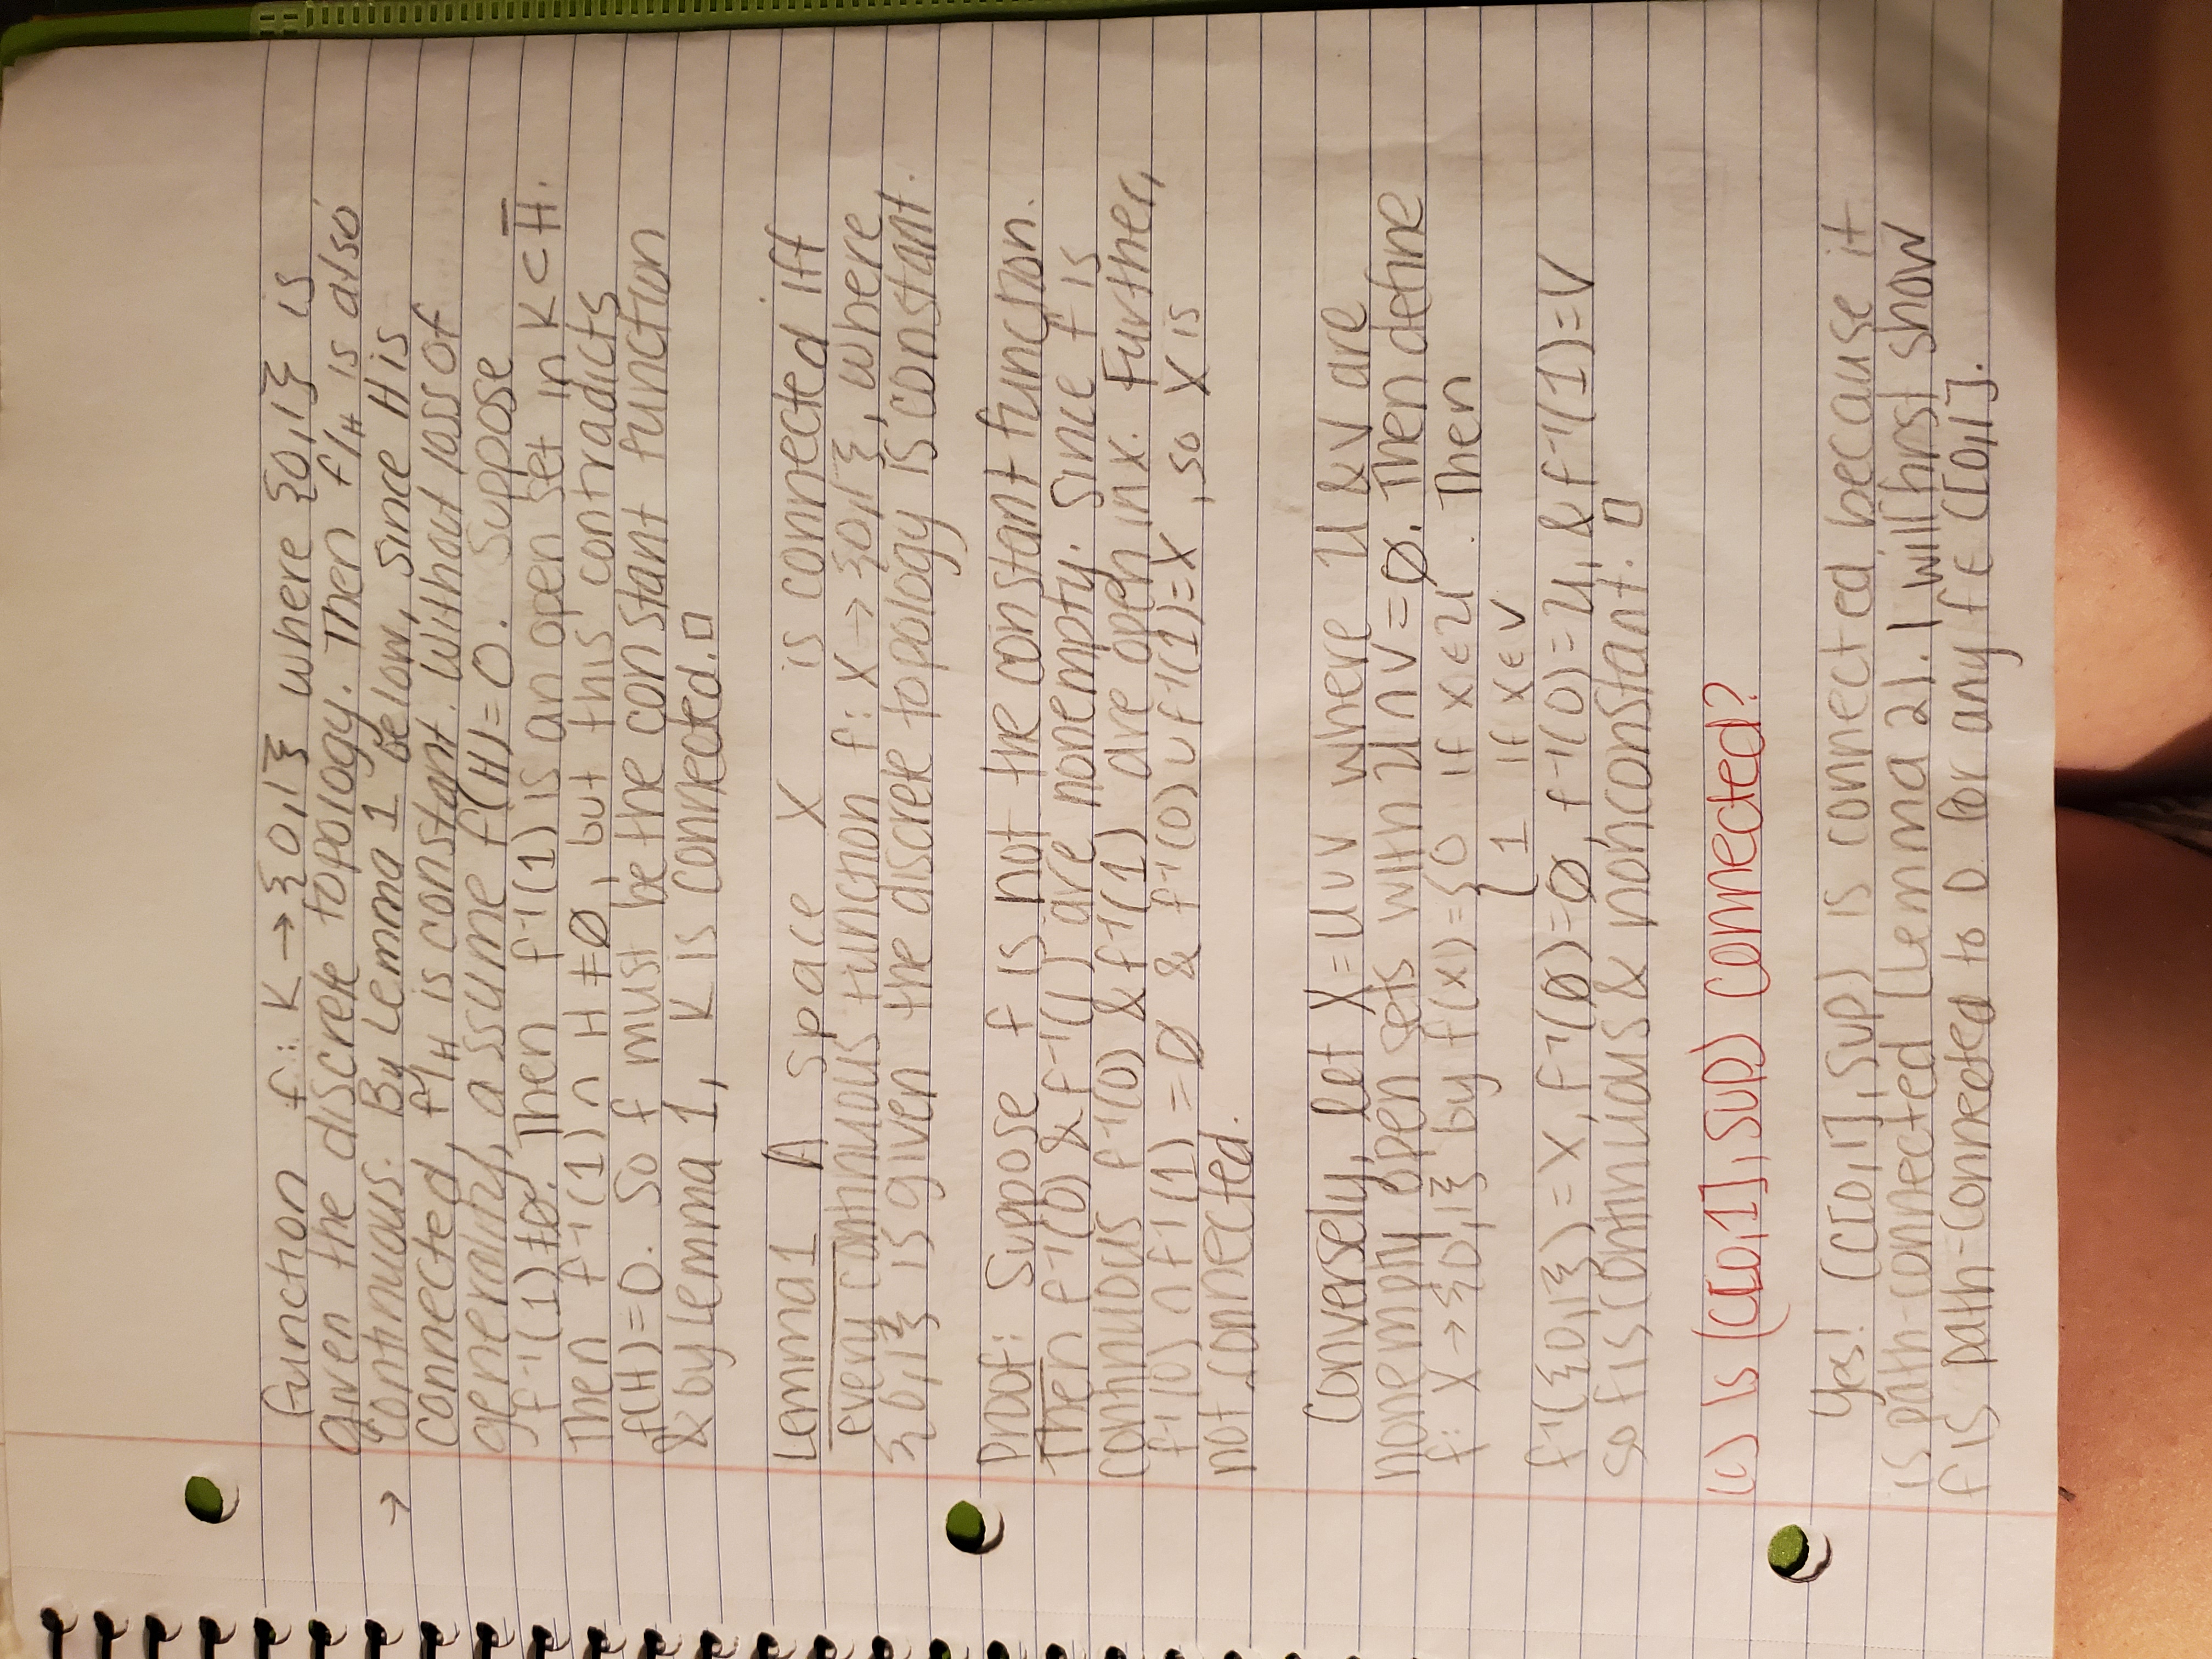 function f: K → {0,1} where {0,1} is
given the discrete topology. Then f|H is also
→ continuous. By Lemma 1 below, since H is
connected, f|H is constant. Without loss of
generality, assume f(H)=0. Suppose
f⁻¹(1)≠∅. Then f⁻¹(1) is an open set in K ⊂ H̅.
Then f⁻¹(1) ∩ H ≠ ∅, but this contradicts
f(H)=0. So f must be the constant function
& by Lemma 1, K is connected. □
Lemma 1 A space X is connected iff
every continuous function f: X → {0,1}, where
{0,1} is given the discrete topology is constant.
Proof: Suppose f is not the constant function.
Then f⁻¹(0) & f⁻¹(1) are nonempty. Since f is
continuous f⁻¹(0) & f⁻¹(1) are open in X. Further,
f⁻¹(0) ∩ f⁻¹(1) = ∅ & f⁻¹(0) ∪ f⁻¹(1)=X, so X is
not connected.
Conversely, let X = U ∪ V where U & V are
nonempty open sets with U ∩ V = ∅. Then define
f: X → {0,1} by f(x) = { 0 if x ∈ U . Then
1 if x ∈ V
f⁻¹({0,1}) = X, f⁻¹(∅)=∅, f⁻¹(0)=U, & f⁻¹(1)=V
so f is continuous & nonconstant. □
Is (C[0,1], sup) connected?
Yes! (C[0,1], sup) is connected because it
is path-connected (Lemma 2). I will first show
f is path-connected to 0 for any f ∈ C[0,1].